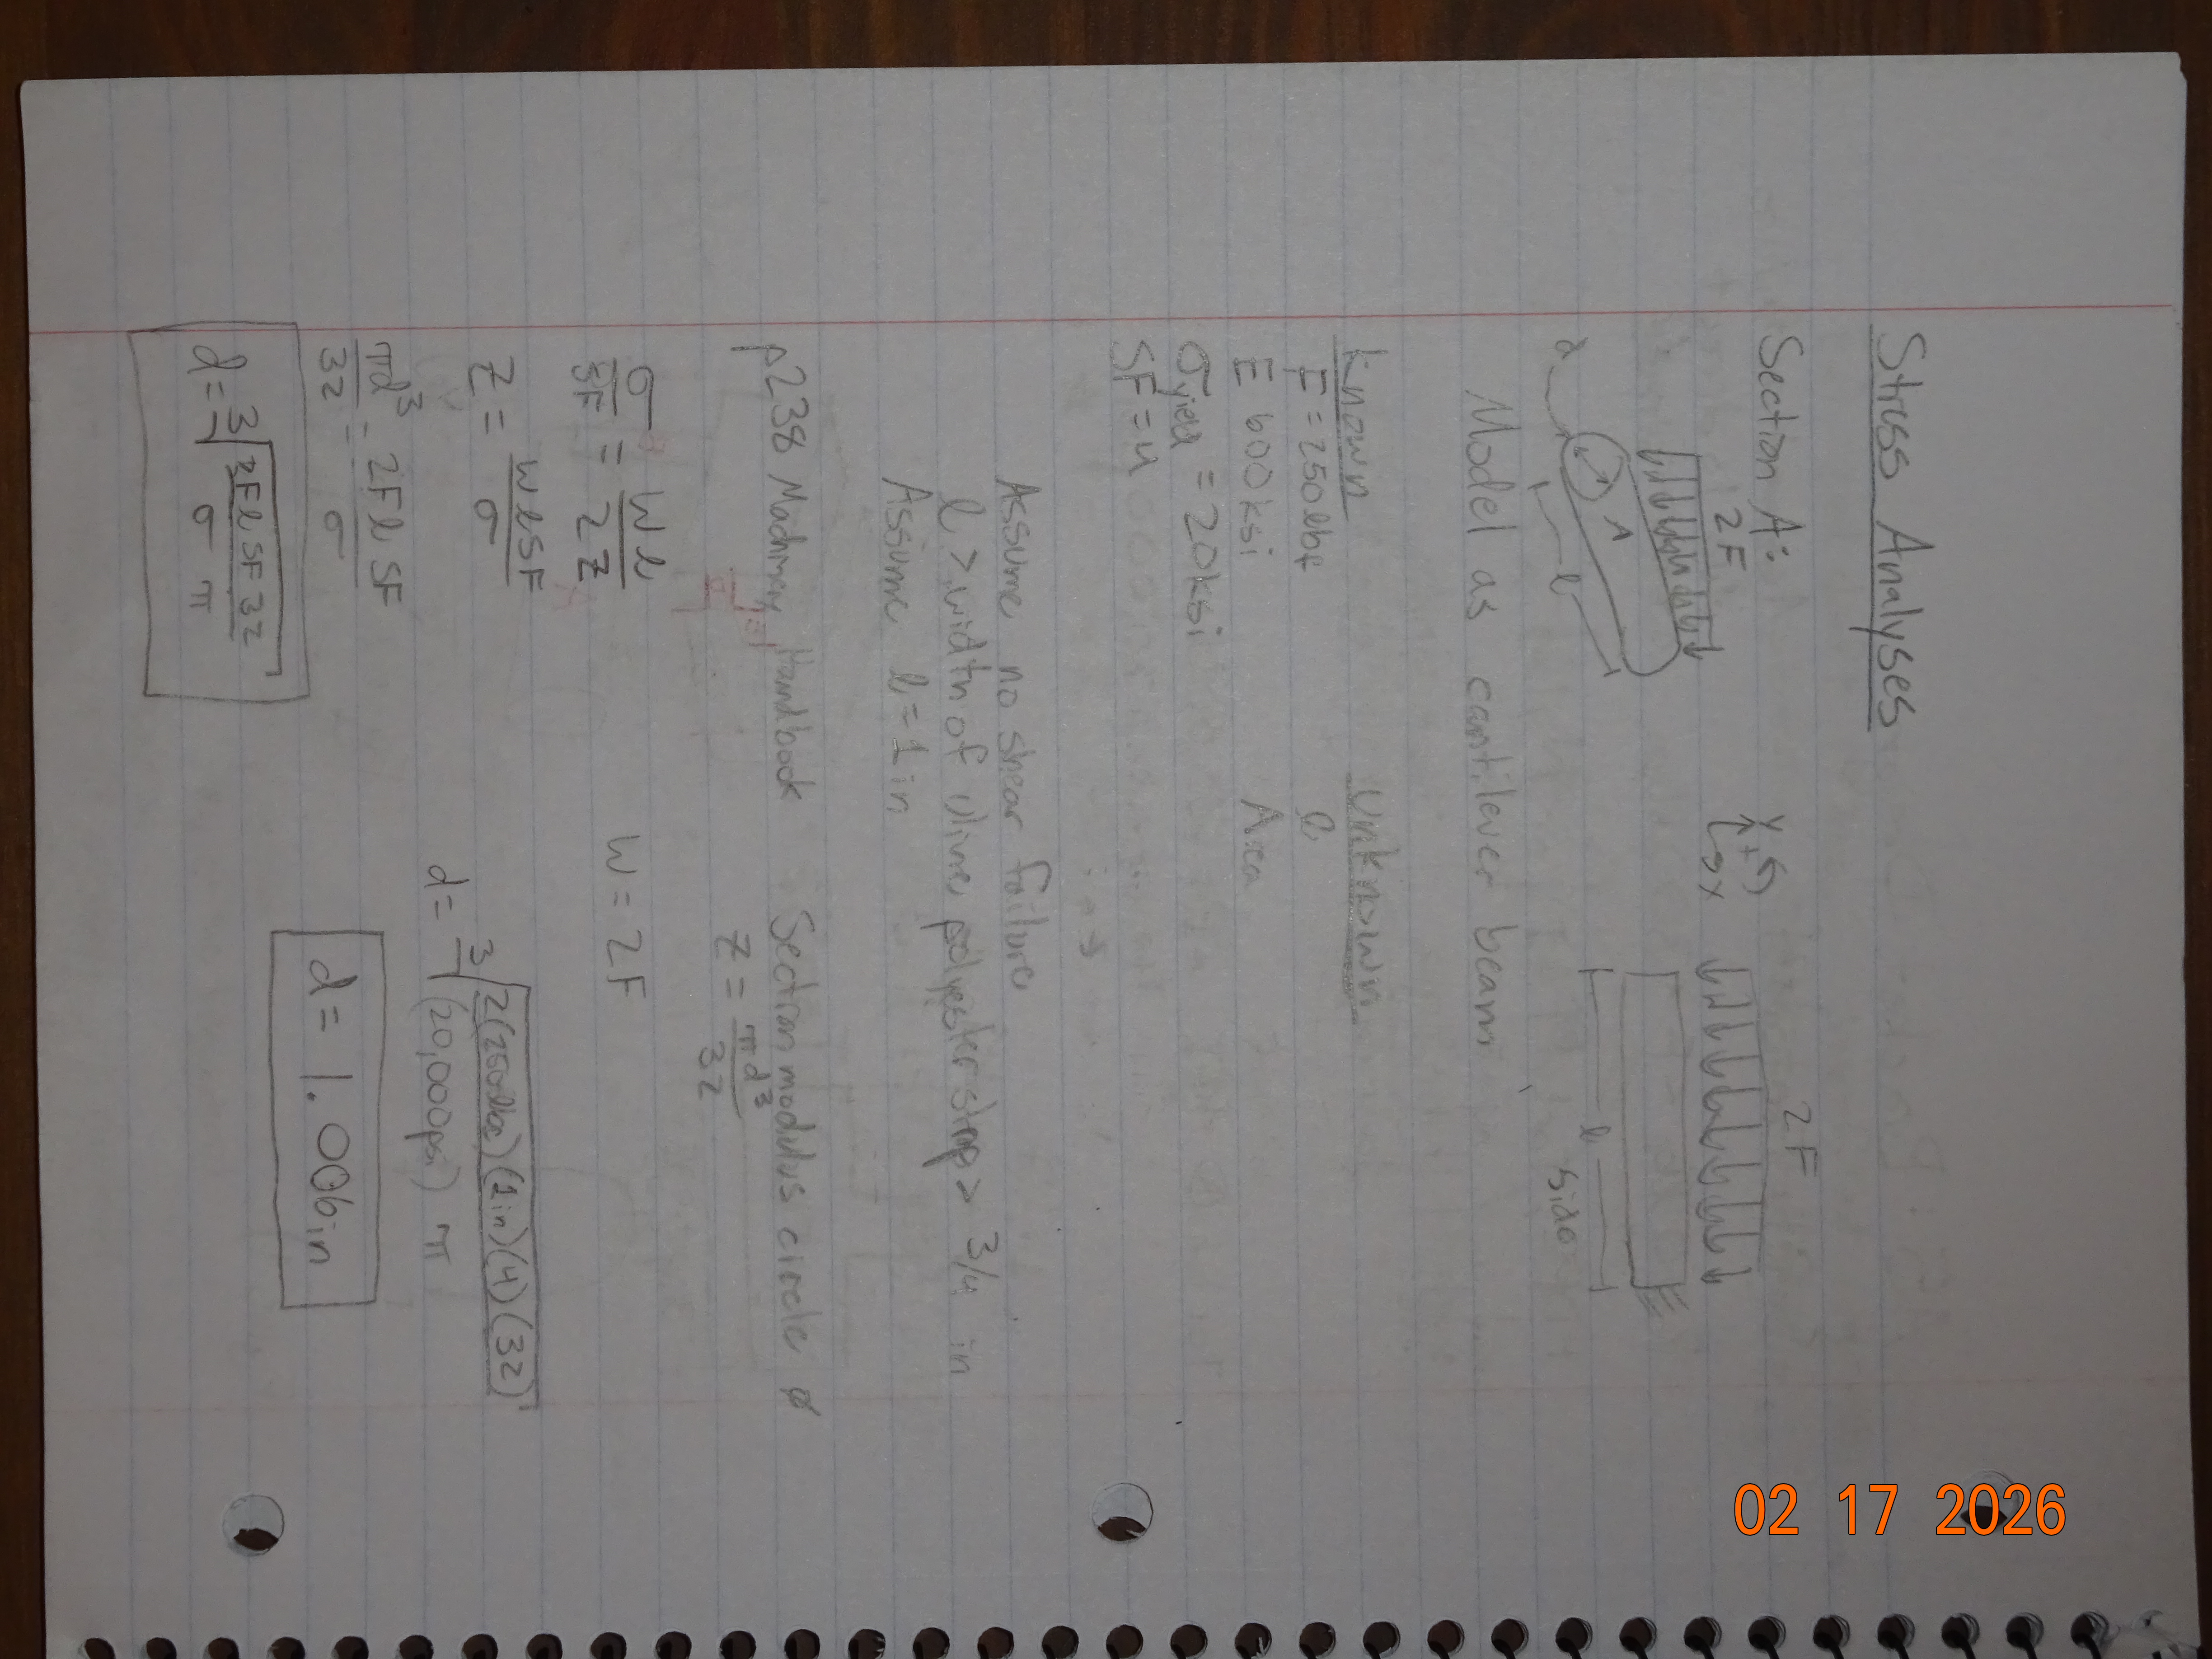 Stress Analyses
Section A:
2F
2F
A
d
l
Y
+
x
l
side
Model as cantilever beam
Known
Unknown
F = 250 lbf
l
E 600ksi
Area
σyield = 20ksi
SF = 4
Assume no shear failure
l > width of polyester strap > 3/4 in
Assume l = 1 in
p238 Machinery Handbook Section modulus circle ø
Z = πd³/32
σ/SF = Wl/2Z
W = 2F
Z = WlSF/σ
πd³/32 = 2Fl SF/σ
d = ∛(2Fl SF 32/σ π)
d = ∛(2(250lbf)(1in)(4)(32)/(20,000psi) π)
d = 1.006in
02 17 2026